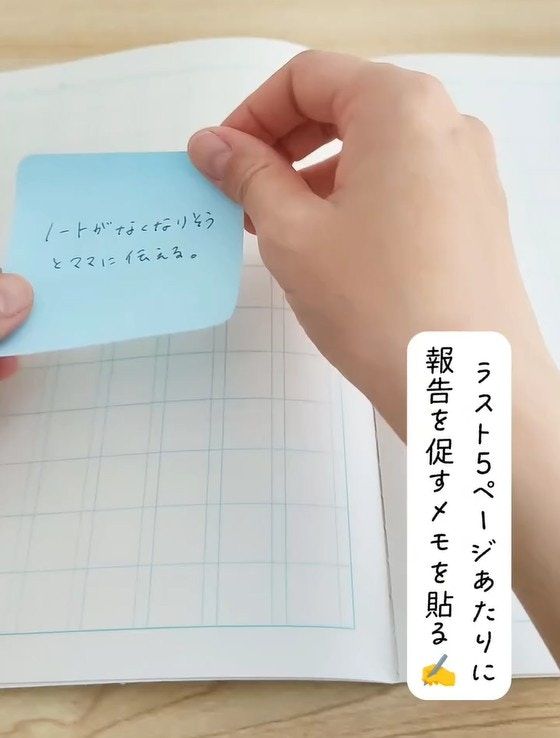 ノートがなくなりそう
とママに伝える。
ラスト5ページあたりに
報告を促すメモを貼る✍️